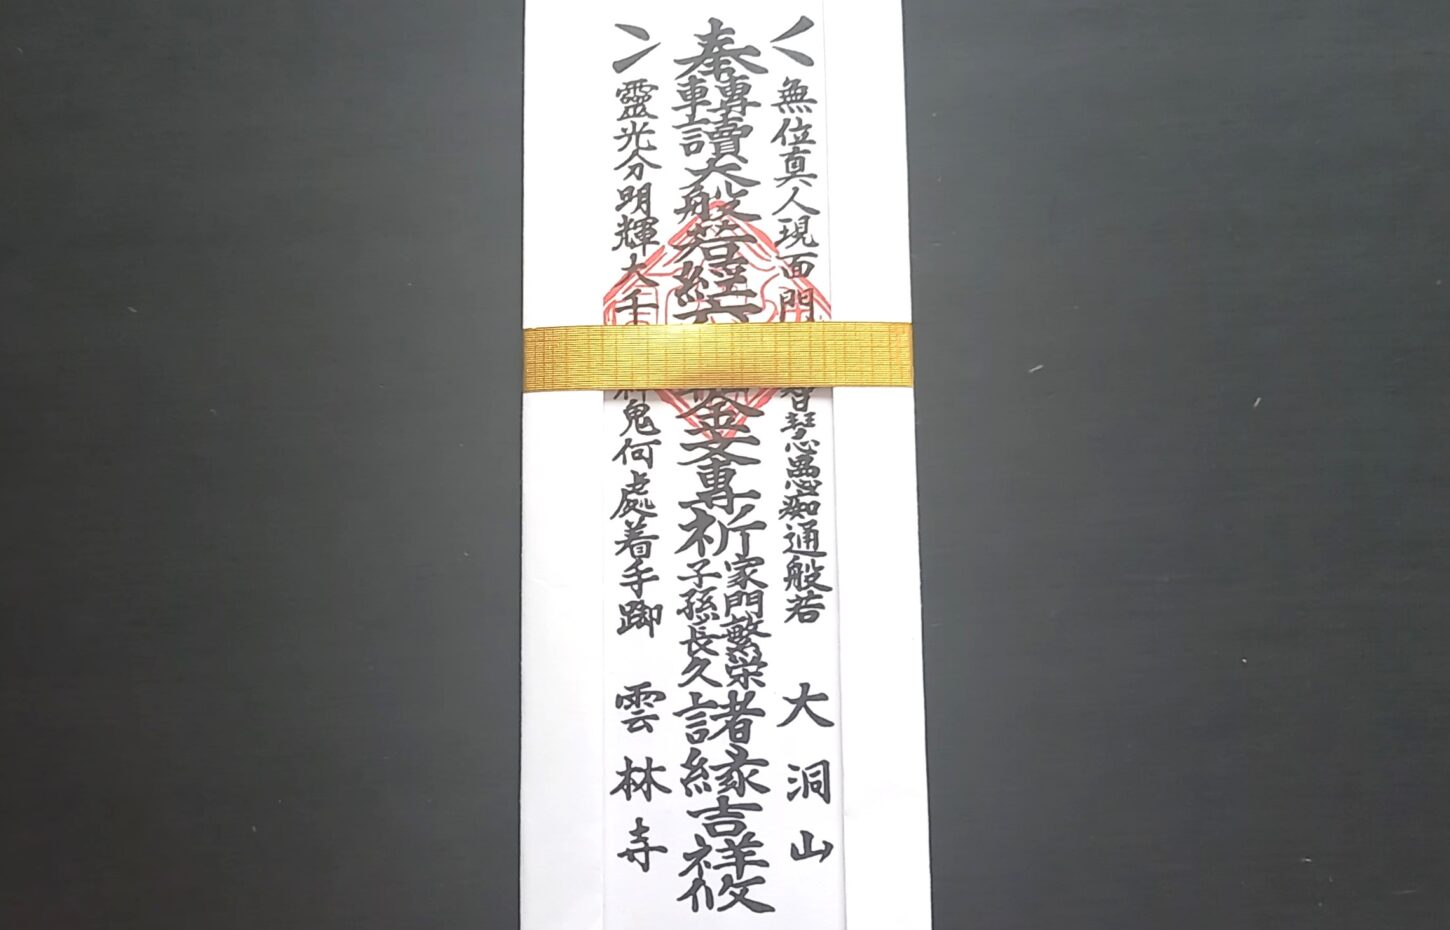 無位真人現面門智慧愚痴通般若
大洞山
奉轉讀大般若経六金文專祈
家門繁栄
子孫長久
諸縁吉祥攸
靈光分明輝大千神鬼何處着手脚
雲林寺